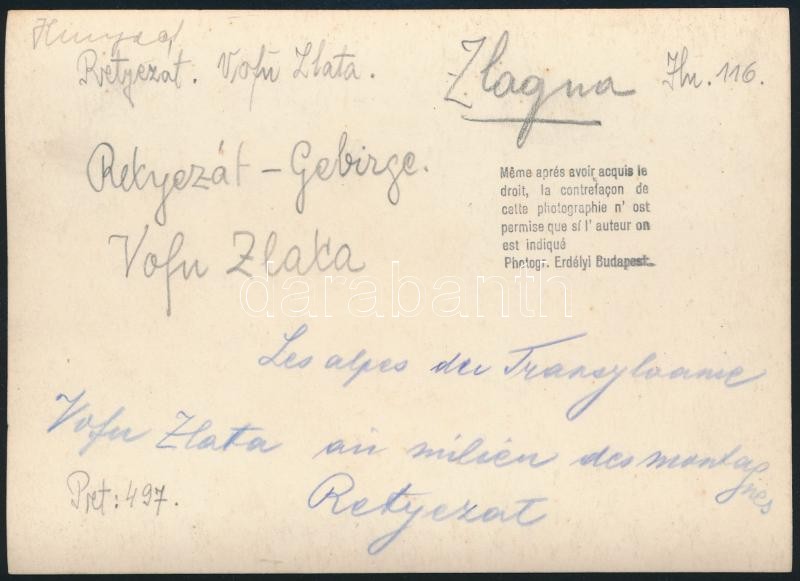 Hunyad
Retyezát. Vofu Zlata.
Zlagna
Hu. 116.
Retyezát - Gebirge.
Vofu Zlata
Même aprés avoir acquis le
droit, la contrefaçon de
cette photographie n' ost
permise que sí l' auteur on
est indiqué
Photogr. Erdélyi Budapest.
darabanth
Les alpes de Transylvanie
Vofu Zlata au milieu des montagnes
Retyezat
Pret: 497.